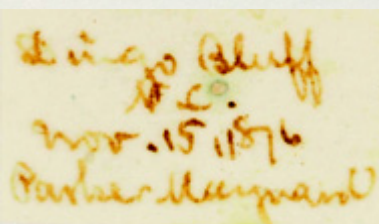 Lingo Bluff
N.C.
Nov. 15, 1876
Parker Maynard